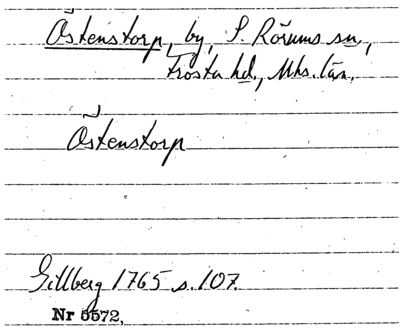 Östenstorp, by, S. Rörums sn,
Frosta hd., Mhs. län.
Östenstorp
Gillberg 1765 s. 107.
Nr 5572.